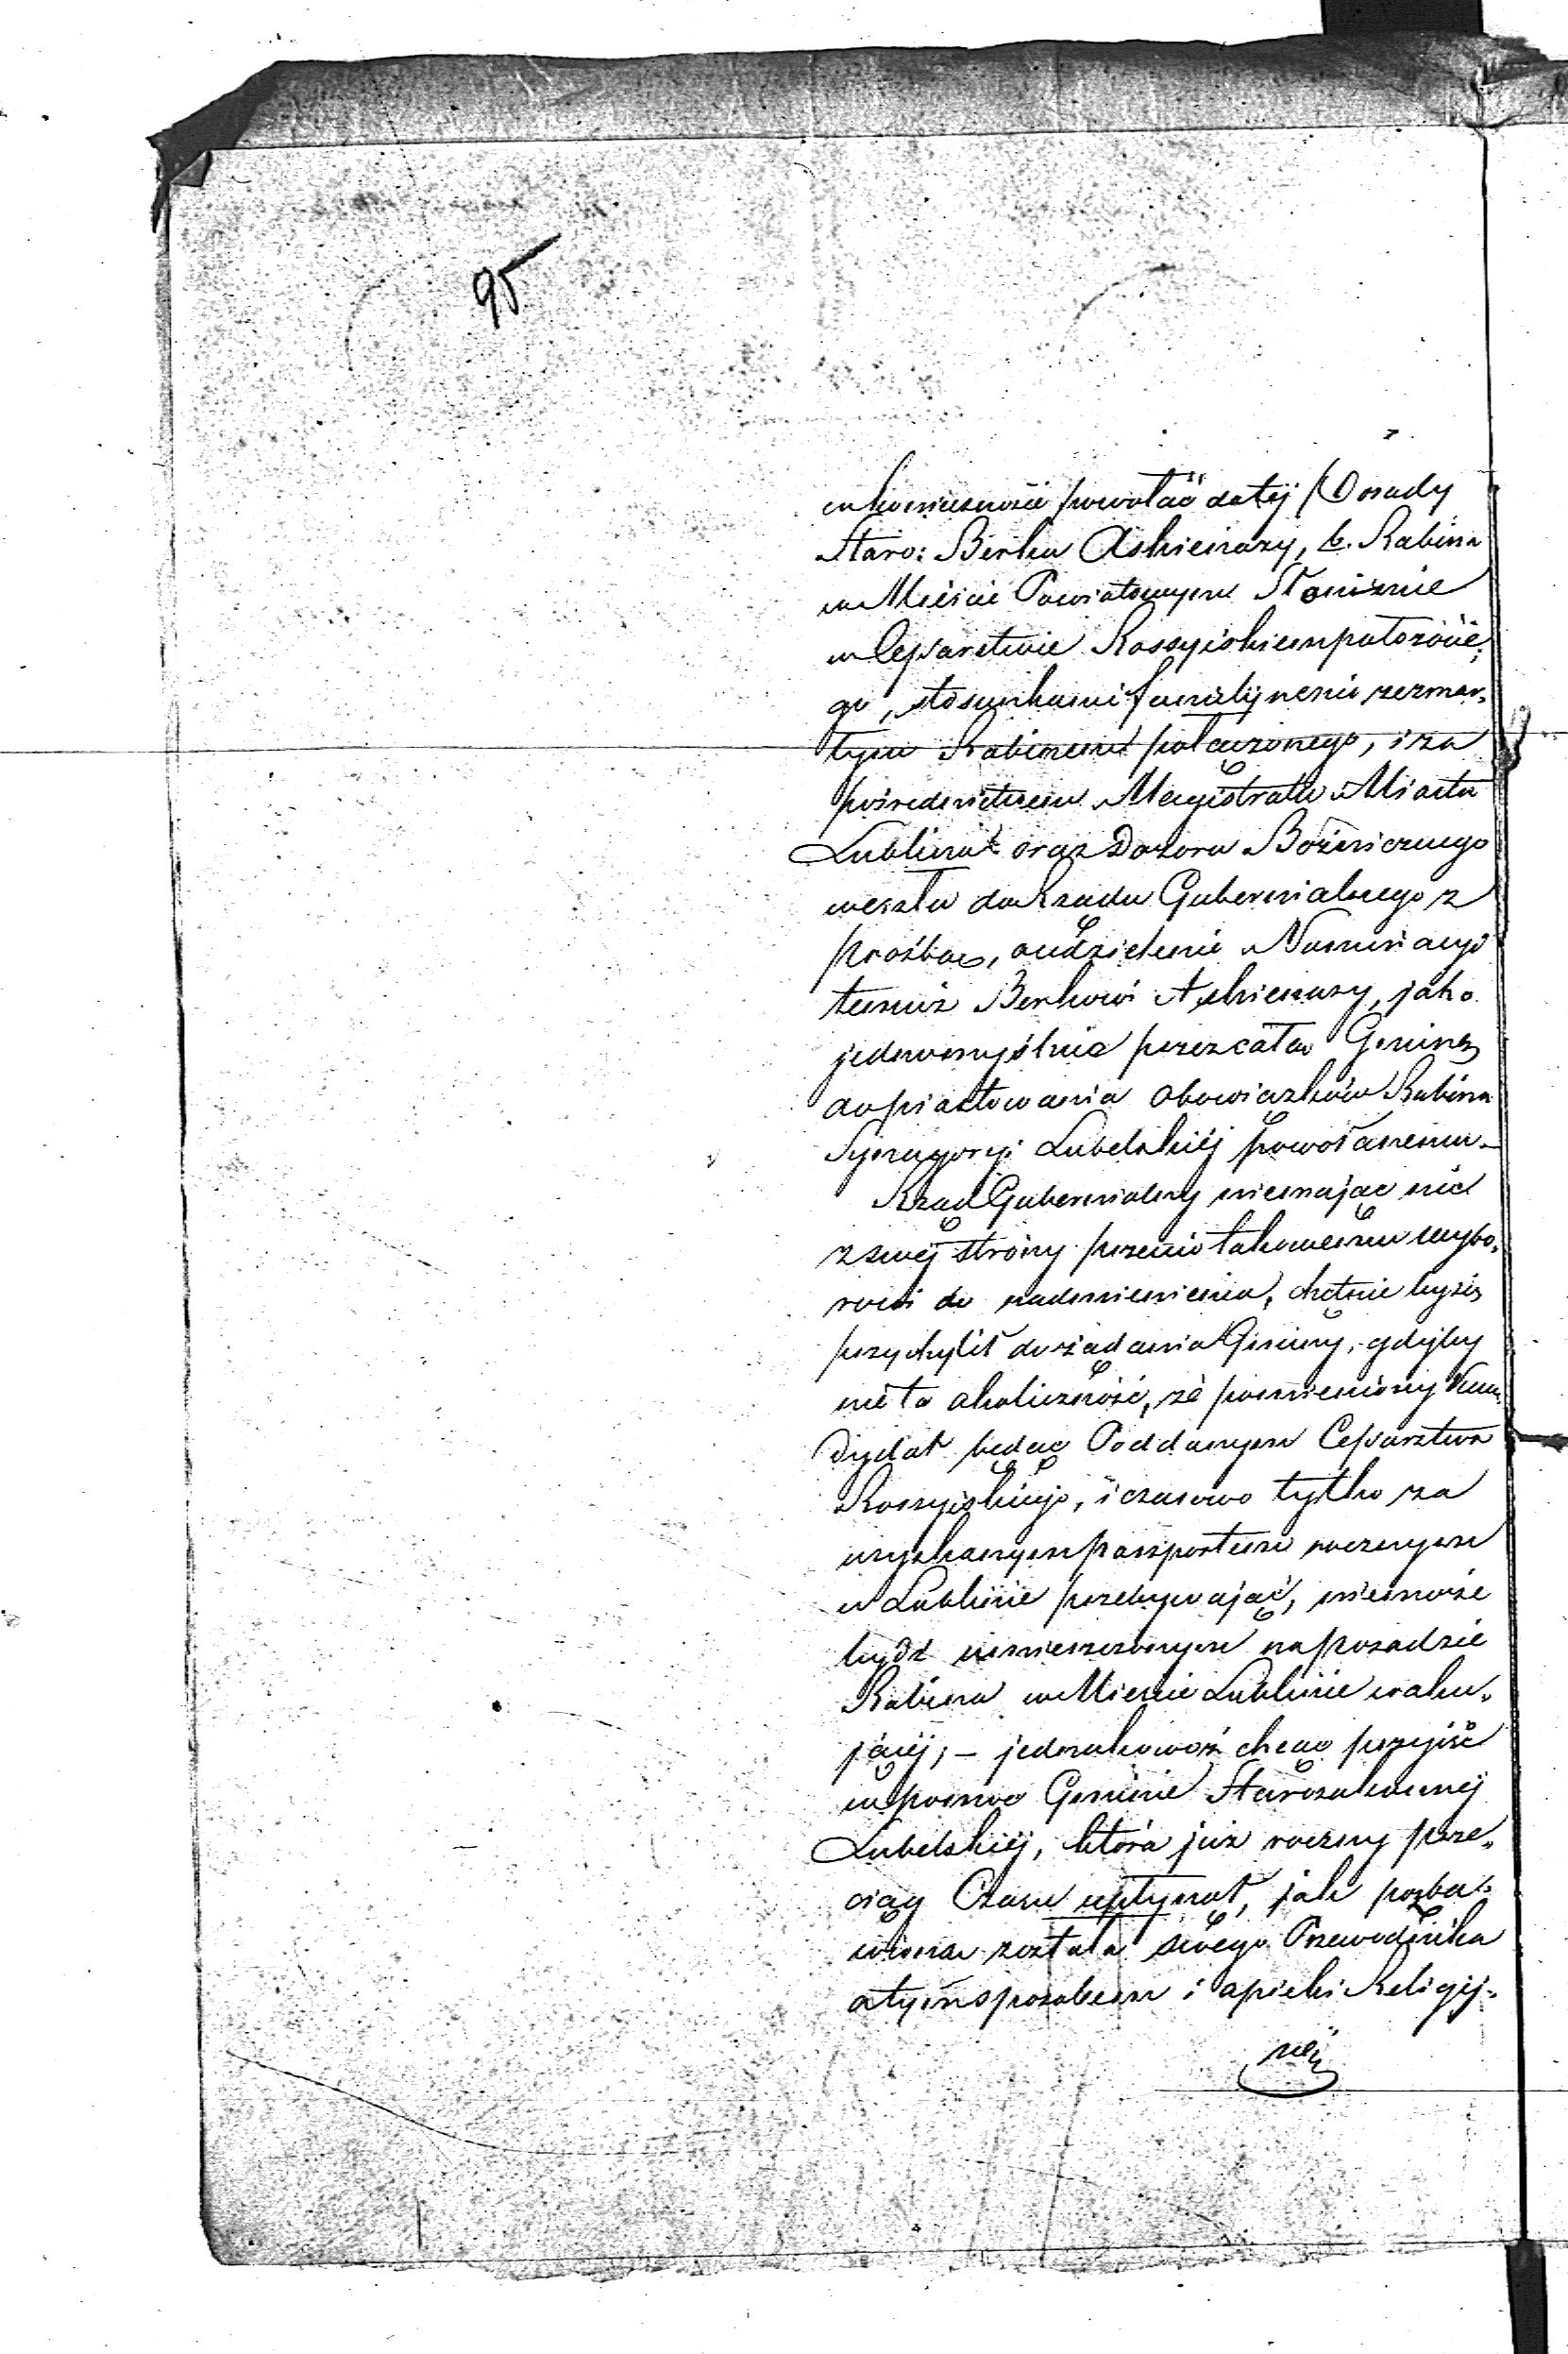 95
w konieczność powołać do tej Posady
Staro: Berka Askienazy, b. Rabina
w Mieście Powiatowym Słonimie
w Cesarstwie Rossyiskiem położone,
go, stosunkami familijnemi z zmar,
łym Rabinem połączonego, i za
pośrednictwem Magistratu Miasta
Lublina oraz Dozoru Bożniczego
weszła do Rządu Gubernialnego z
prośbą, o udzielenie Nominacyi
temuż Berkowi Askienazy, jako
jednomyślnie przez całą Gminę
do piastowania obowiązków Rabina
Synagogi Lubelskiéj powołanemu.–
Rząd Gubernialny niemając nic
z swéj strony przeciw takowemu wybo,
rowi do nadmienienia, chętnie byś się
przychylił do żądania Gminy, gdyby
nie ta okoliczność, że pomieniony Kan,
dydat będąc Poddanym Cesarztwa
Rossyiskiego, i czasowo tylko za
uzyskanym paszportem rocznym
w Lublinie przebywając, niemoże
bydź umieszczonym na posadzie
Rabina w Mieście Lublinie waku,
jącéj; – jednakowoż chcąc przyjść
w pomoc Gminie Starozakonnéj
Lubelskiéj, która już roczny prze,
ciąg Czasu upłynął, jak pozba,
wiona została swego Przewodnika
a tym sposobem i opieki Religij,
néj